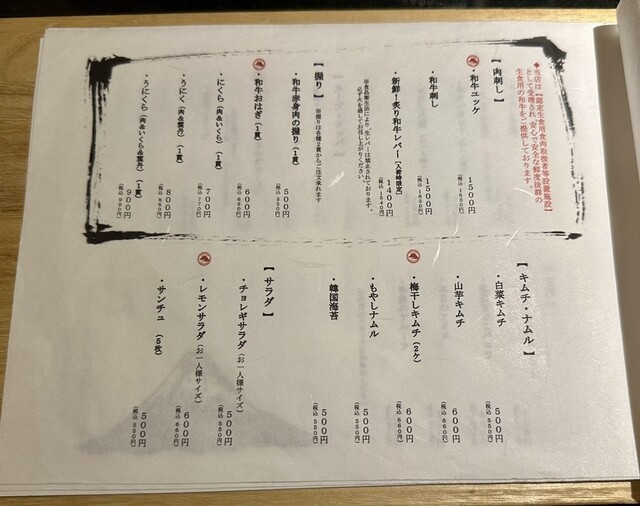 ◆当店は【認定生食用食肉取扱者等設置施設】
として受理され、安心で安全な鮮度抜群の
生食用の和牛をご提供しております。
【肉刺し】
・和牛ユッケ
1500円
(税込1650円)
・和牛刺し
1500円
(税込1650円)
・新鮮！炙り和牛レバー(入荷時限定)
1400円
(税込1540円)
※食品衛生法により、生レバーは禁止されております。
必ず火を通してお召し上がりください。
【握り】※握りは各種2貫からご注文承れます
・和牛赤身肉の握り(1貫)
500円
(税込550円)
・和牛おはぎ(1貫)
600円
(税込660円)
・にくら(肉&いくら)(1貫)
700円
(税込770円)
・うにく(肉&雲丹)(1貫)
800円
(税込880円)
・うにくら(肉&いくら&雲丹)(1貫)
900円
(税込990円)
【キムチ・ナムル】
・白菜キムチ
500円
(税込550円)
・山芋キムチ
600円
(税込660円)
・梅干しキムチ(2ケ)
600円
(税込660円)
・もやしナムル
500円
(税込550円)
・韓国海苔
500円
(税込550円)
【サラダ】
・チョレギサラダ(お一人様サイズ)
500円
(税込550円)
・レモンサラダ(お一人様サイズ)
600円
(税込660円)
・サンチュ(5枚)
500円
(税込550円)